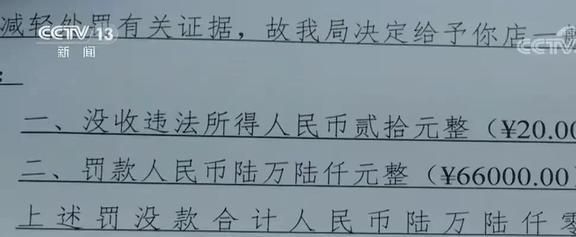 CCTV 13
新闻
减轻处罚有关证据，故我局决定给予你店一般
：
一、没收违法所得人民币贰拾元整（¥20.00
二、罚款人民币陆万陆仟元整（¥66000.00）
上述罚没款合计人民币陆万陆仟零